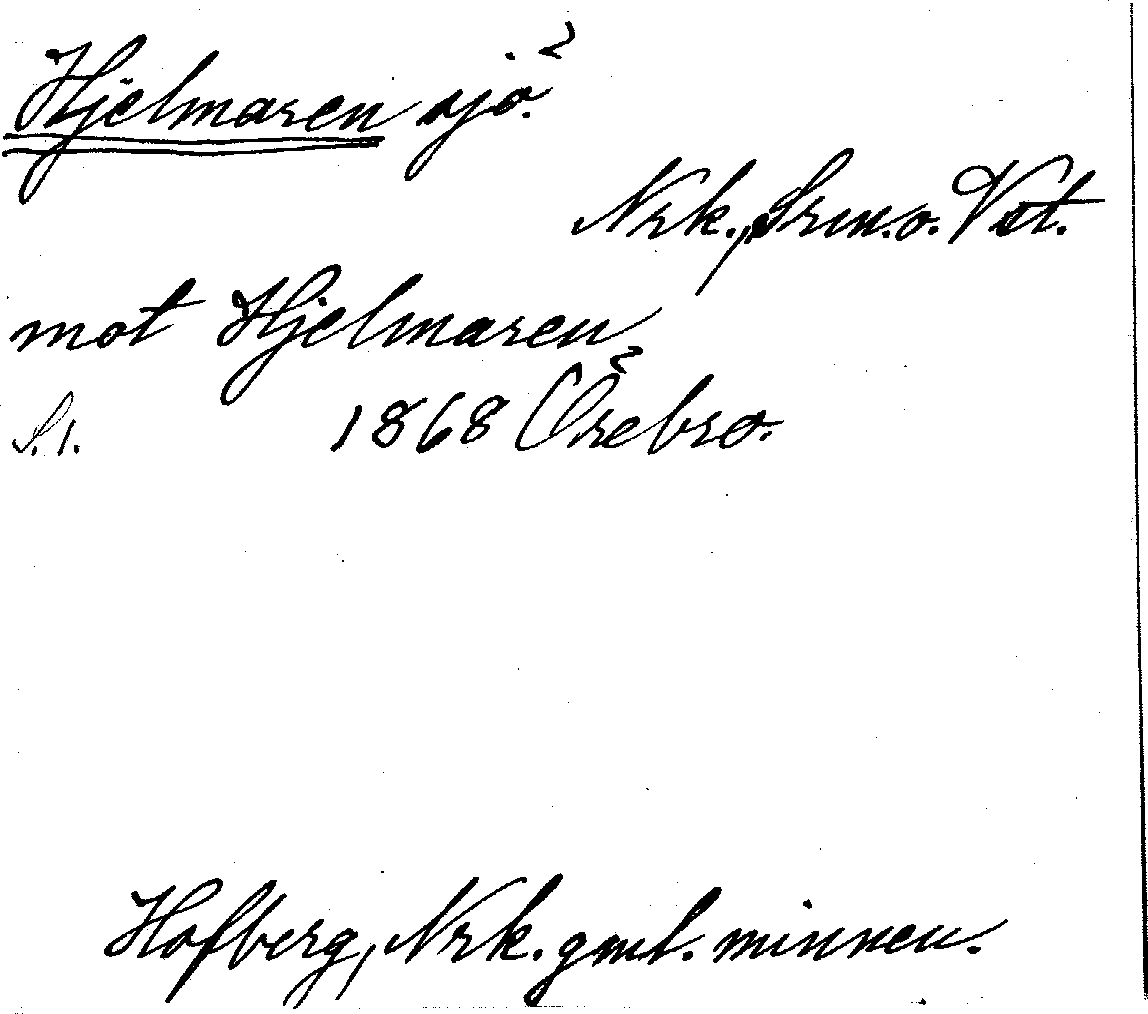 Hjelmaren sjö.
Nrk., Srm. o. Vst.
mot Hjelmaren
S. 1. 1868 Örebro.
Hofberg, Nrk. gml. minnen.